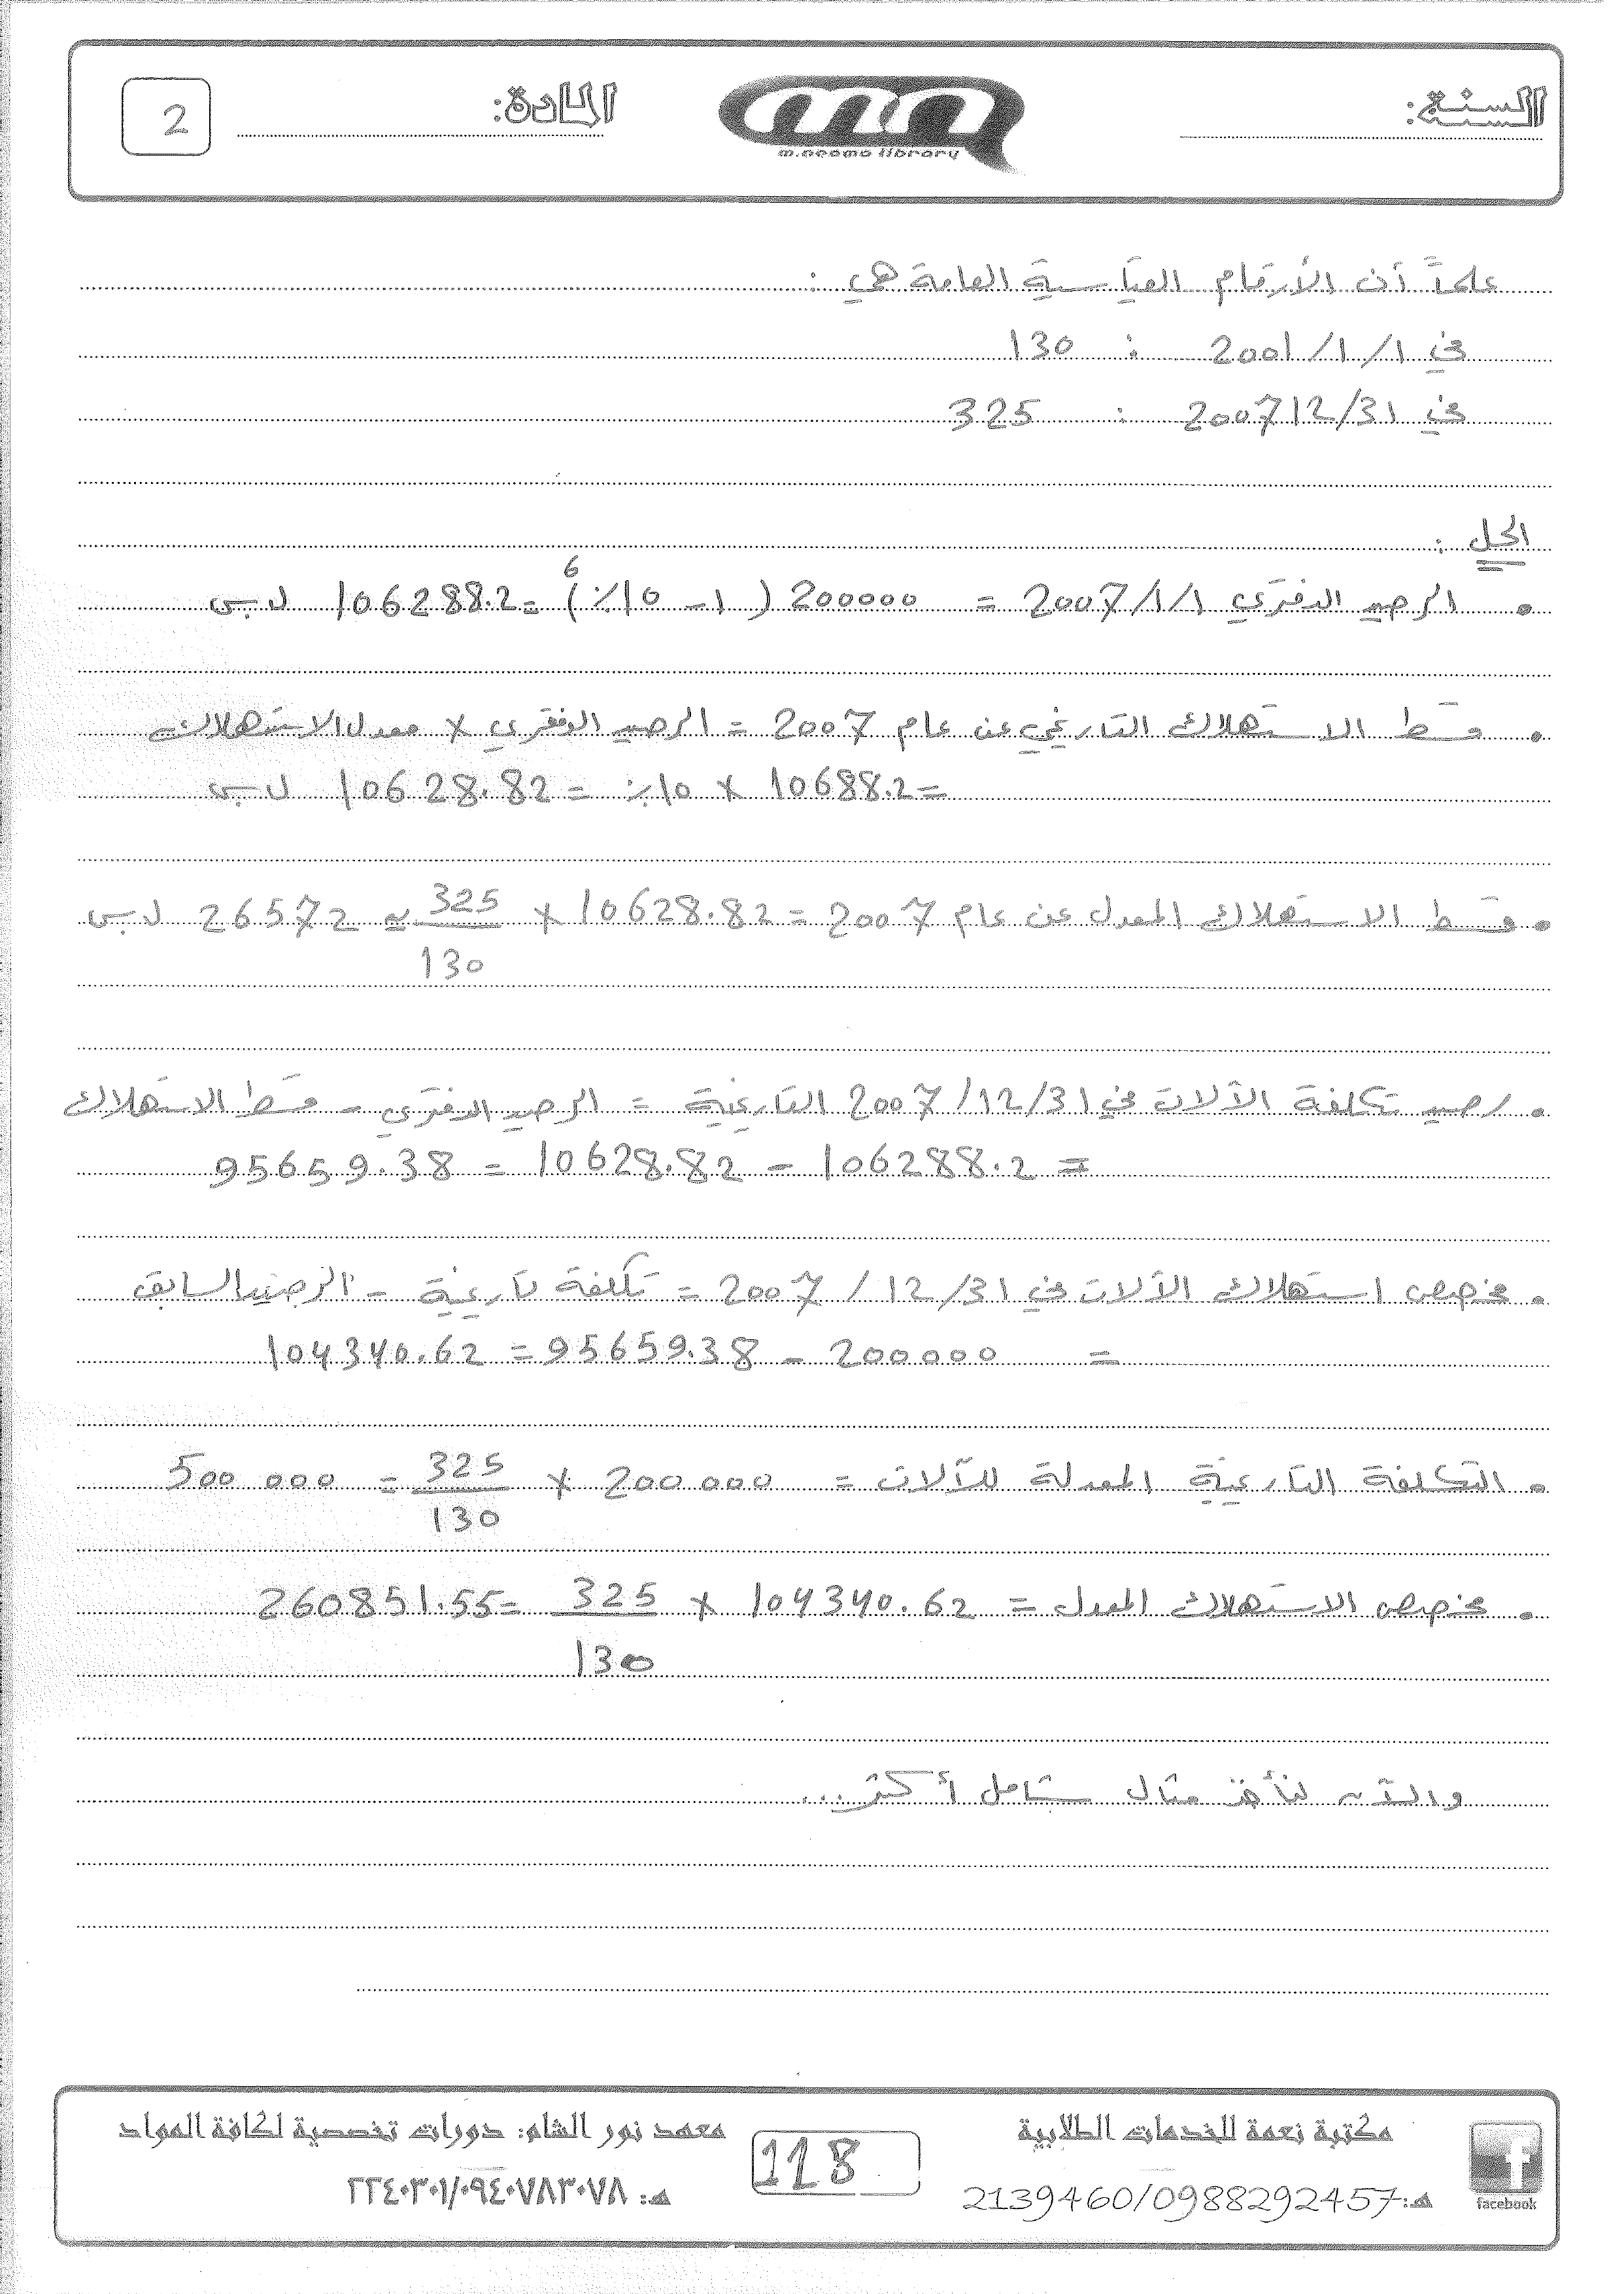 السنة:
m.neama library
المادة:
2
علماً أن الأرقام القياسية العامة هي :
في 1/1/2001 : 130
في 31/12/2007 : 325
الحل :
• الرصيد الدفتري 1/1/2007 = 200000 (1 - 10%)^6 = 106288.2 ل.س
• قسط الاستهلاك التاريخي عن عام 2007 = الرصيد الدفتري × معدل الاستهلاك
= 10688.2 × 10% = 10628.82 ل.س
• قسط الاستهلاك المعدل عن عام 2007 = 10628.82 × 325/130 ≈ 26572 ل.س
• رصيد تكلفة الآلات في 31/12/2007 التاريخية = الرصيد الدفتري - قسط الاستهلاك
= 106288.2 - 10628.82 = 95659.38
• مخصص استهلاك الآلات في 31/12/2007 = تكلفة تاريخية - الرصيد السابق
= 200000 - 95659.38 = 104340.62
• التكلفة التاريخية المعدلة للآلات = 200000 × 325/130 = 500000
• مخصص الاستهلاك المعدل = 104340.62 × 325/130 = 260851.55
والآن لنأخذ مثال شامل أكثر...
مكتبة نعمة للخدمات الطلابية
هـ: 2139460/0988292457
facebook
118
معهد نور الشام: دورات تخصصية لكافة المواد
هـ: ٢٢٤٠٣٠١/٠٩٤٠٧٨٣٠٧٨